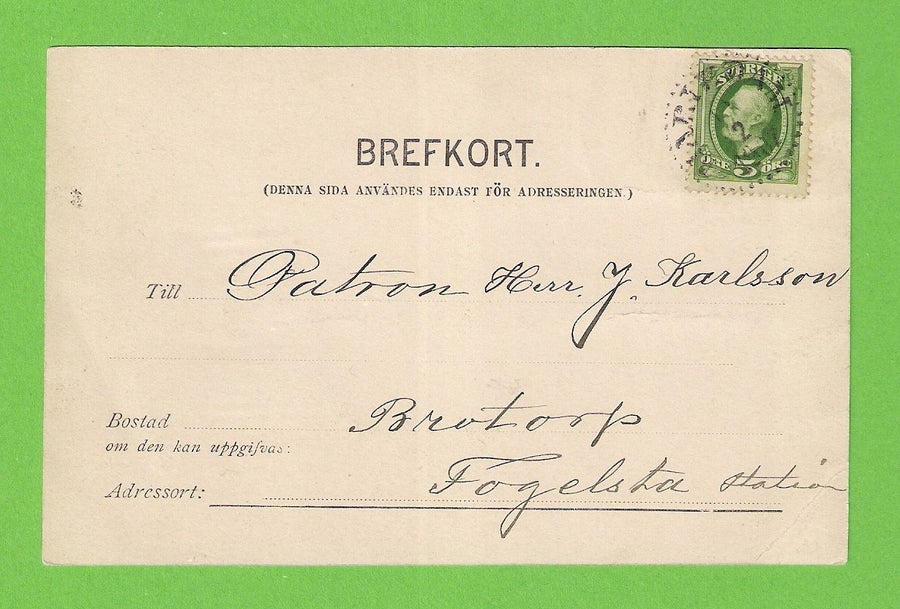 SVERIGE
5 ÖRE 5 ÖRE
BREFKORT.
(DENNA SIDA ANVÄNDES ENDAST FÖR ADRESSERINGEN.)
Till Patron Herr. J. Karlsson
Bostad Brotorp
om den kan uppgifvas:
Adressort: Fogelsta station